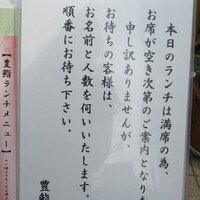 本日のランチは満席の為、
お席が空き次第のご案内となりま
申し訳ありませんが、
お待ちの客様は、
お名前と人数を伺いいたします。
順番にお待ち下さい。
豊鮨
【豊鮨ランチメニュー】